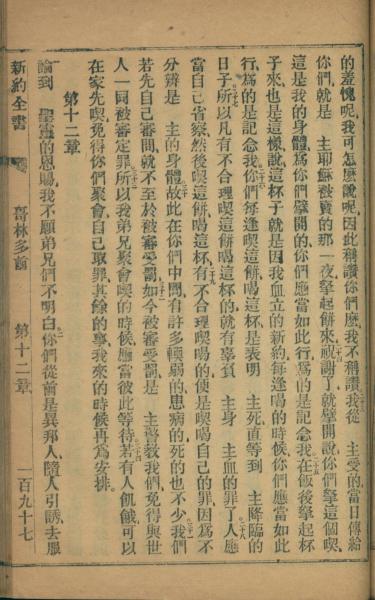 的羞愧呢、我可怎麼說呢、因此稱讚你們麼、我不稱讚、我從　主受的、當日傳給
你們、就是　主耶穌被賣的那一夜、拏起餅來、祝謝了、就擘開、說、你們拏這個喫、
這是我的身體、爲你們擘開的、你們應當如此行、爲的是記念我、在飯後、拏起杯
子來、也是這樣、說、這杯子就是因我血立的新約、每逢喝的時候、你們應當如此
行、爲的是記念我、你們每逢喫這餅、喝這杯、是表明　主死、直等到　主降臨的
日子、所以凡有不合理喫這餅喝這杯的、就有辜負　主身　主血的罪了、人應
當自己省察、然後喫這餅喝這杯、有不合理喫喝的、便是喫喝自己的罪、因爲不
分辨是　主的身體、故此在你們中間、有許多輭弱的、患病的、死的也不少、我們
若先自己審問、就不至於被審受罰、如今被審受罰、是　主警教我們、免得與世
人一同被審定罪、所以我弟兄聚會喫的時候、應當彼此等待、若有人飢餓、可以
在家先喫、免得你們聚會、自己取罪、其餘的事、我來的時候再爲安排、
第十二章
論到　聖靈的恩賜、我不願弟兄們不明白、你們從前是異邦人、隨人引誘、去服
新約全書　哥林多前　第十二章　一百九十七